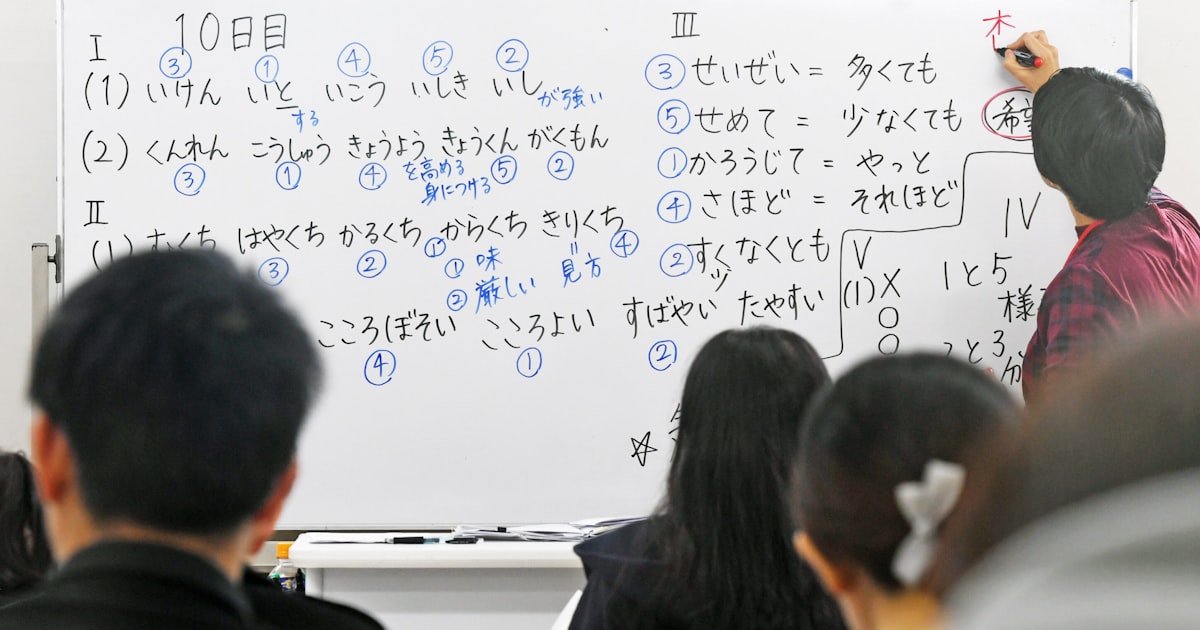 I 10日目
③ ① ④ ⑤ ②
(1) いけん いと いこう いしき いし が強い
する
(2) くんれん こうしゅう きょうよう きょうくん がくもん
③ ① ④ を高める ⑤ ②
身につける
II
(1) むくち はやくち かるくち からくち きりくち
③ ② ① ④
① 味
② 厳しい 見方
こころぼそい こころよい すばやい たやすい
④ ① ②
III
③ せいぜい = 多くても
⑤ せめて = 少なくても
① かろうじて = やっと
④ さほど = それほど
② すくなくとも
IV
1と5
様
と3
分
V
(1) X
○
○
☆